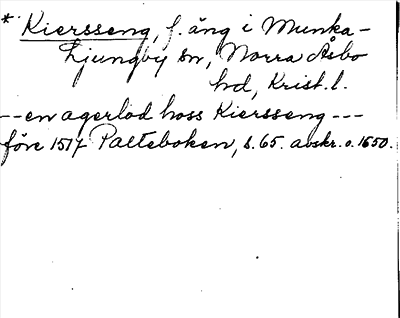 * Kiersseng, f. äng i Munka-
Ljungby sn, Norra Åsbo
hd, Krist. l.
-- en agerlod hoss Kiersseng ---
före 1517 Palteboken, s. 65. avskr. o. 1650.